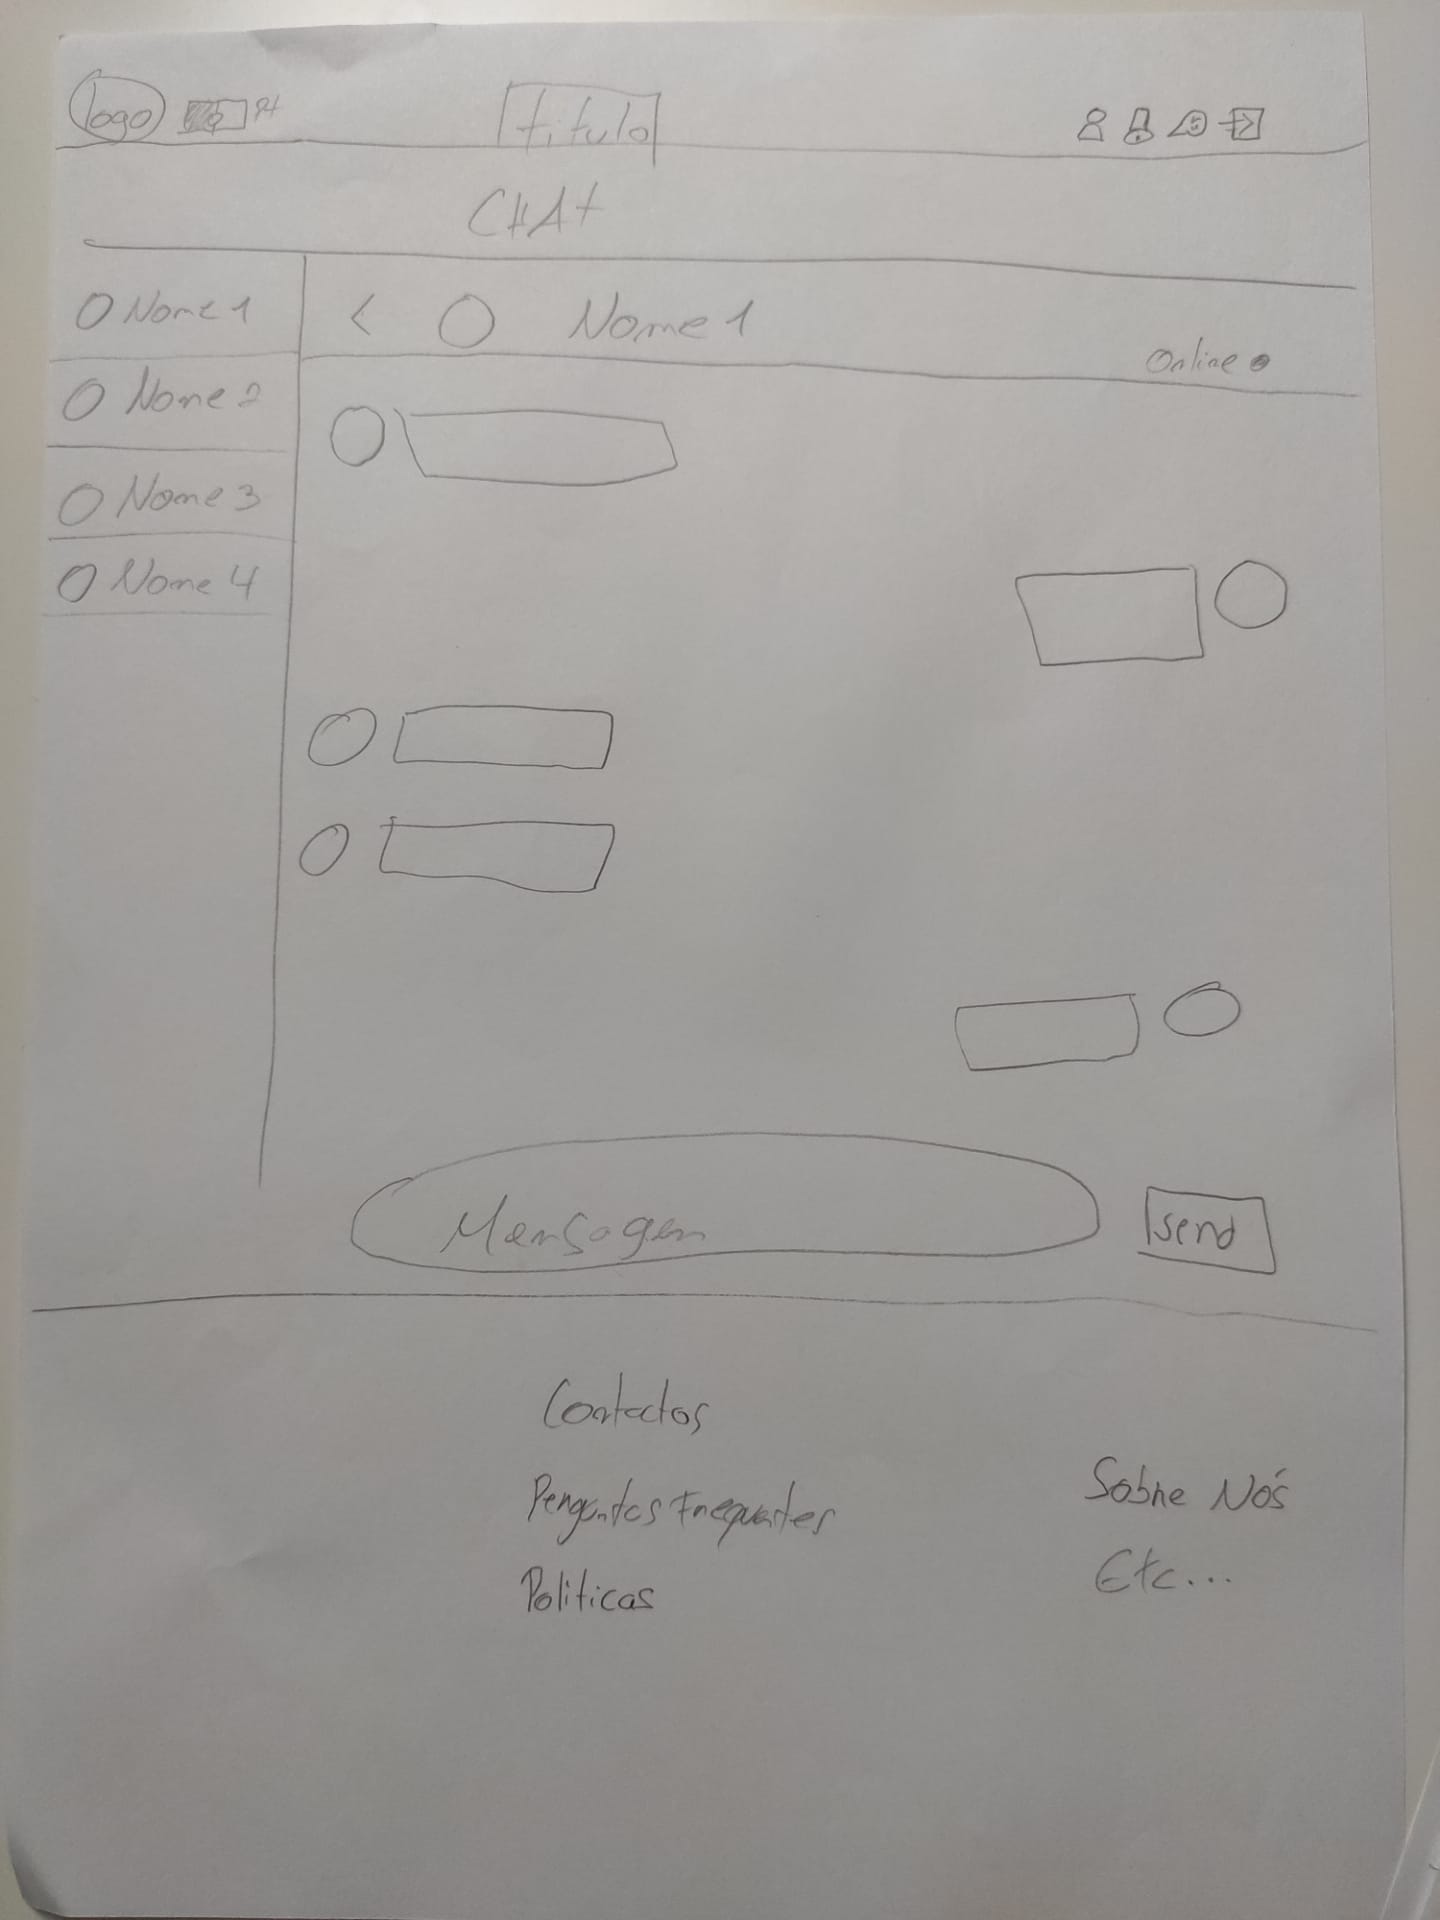 logo PT titulo
CHAt
Nome 1
Nome 2
Nome 3
Nome 4
< Nome 1
Online
Mensagem
send
Contactos
Perguntas Frequentes
Politicas
Sobre Nós
Etc...